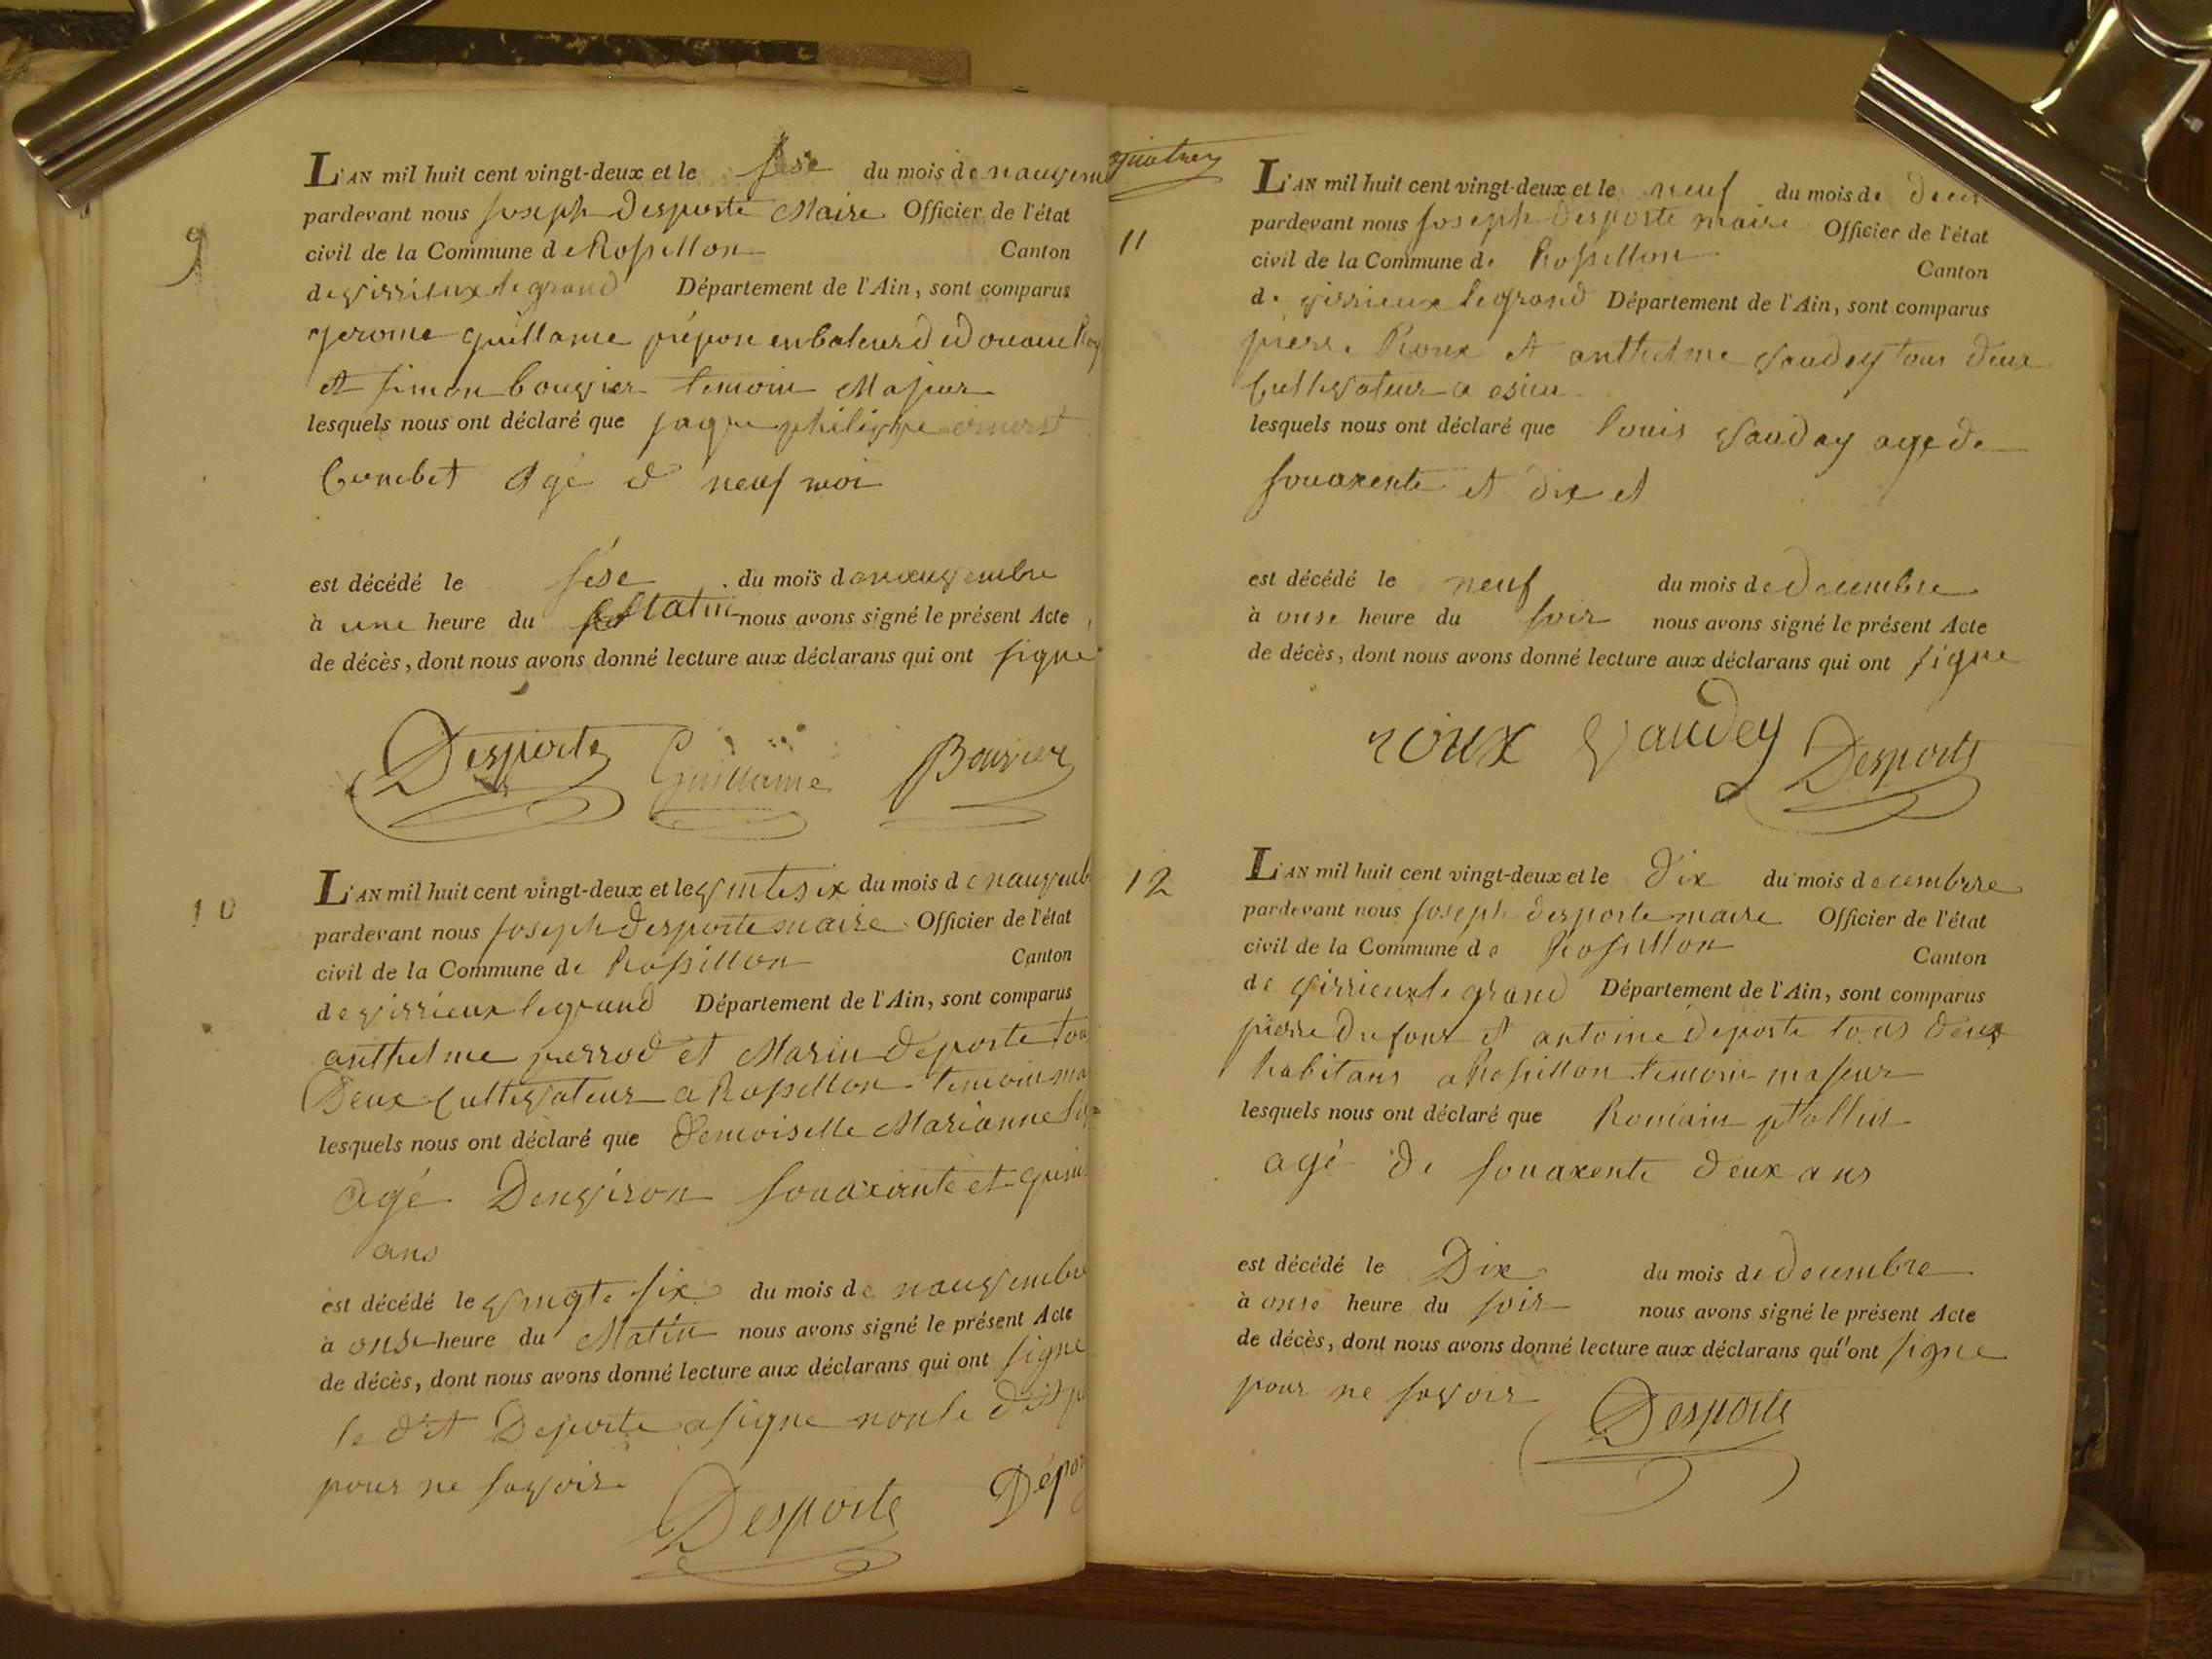 9
L'AN mil huit cent vingt-deux et le sese du mois de nauvem
pardevant nous Joseph Desporte Maire Officier de l'état
civil de la Commune de Rossillon Canton
de virrieux le grand Département de l'Ain, sont comparus
jerome guillame prépose
et simon bouvier temoin Majeur
lesquels nous ont déclaré que jaque philippe
Combet Agé d neuf moi
est décédé le sése du mois de nauvembre
à une heure du Matin nous avons signé le présent Acte
de décès, dont nous avons donné lecture aux déclarans qui ont signe
Desporte Guillaume Bouvier
10
L'AN mil huit cent vingt-deux et le vintesix du mois de nauvemb
pardevant nous Joseph Desporte maire Officier de l'état
civil de la Commune de Rossillon Canton
de virrieux legrand Département de l'Ain, sont comparus
anthelme perrod et Marin deporte tou
Deux Cultivateur a Rossillon temoin ma
lesquels nous ont déclaré que Demoiselle Marianne
agé Denviron souaxante et quins
ans
est décédé le vingte six du mois de nauvembre
à onse heure du Matin nous avons signé le présent Acte
de décès, dont nous avons donné lecture aux déclarans qui ont signe
le dit Deporte a signe non le dit p
pour ne savoir
Desporte Dépor
11
L'AN mil huit cent vingt-deux et le neuf du mois de decem
pardevant nous Joseph Desporte maire Officier de l'état
civil de la Commune de Rossillon Canton
de virrieux legrand Département de l'Ain, sont comparus
pierre Roux et anthelme vaudey tous deux
Cultivateur a esieu
lesquels nous ont déclaré que louis vauday age de
souaxente et dix et
est décédé le neuf du mois de decembre
à onse heure du soir nous avons signé le présent Acte
de décès, dont nous avons donné lecture aux déclarans qui ont signe
roux vaudey Desporte
12
L'AN mil huit cent vingt-deux et le dix du mois decembre
pardevant nous Joseph desporte maire Officier de l'état
civil de la Commune de Rossillon Canton
de virrieux le grand Département de l'Ain, sont comparus
pierre Dufour et antoine deporte tous deux
habitans a Rossillon temoin majeur
lesquels nous ont déclaré que Romain
agé de souaxente deux ans
est décédé le Dix du mois de decembre
à onse heure du soir nous avons signé le présent Acte
de décès, dont nous avons donné lecture aux déclarans qui ont signe
pour ne savoir
Desporte